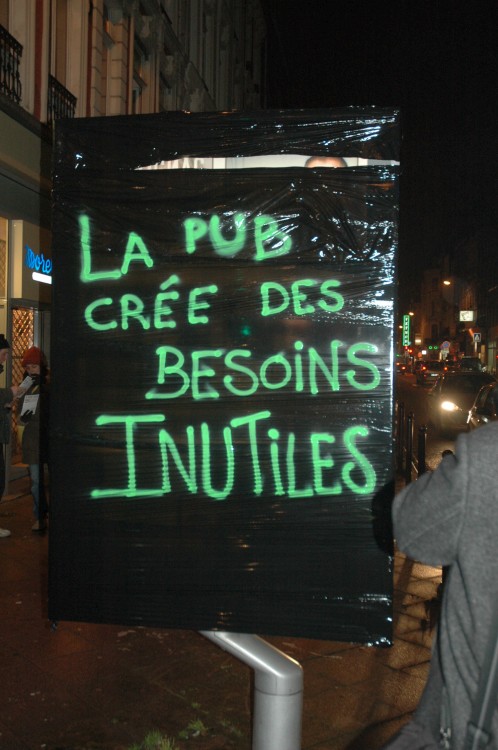 LA PUB
CRÉE DES
BESOiNS
INUTiLES